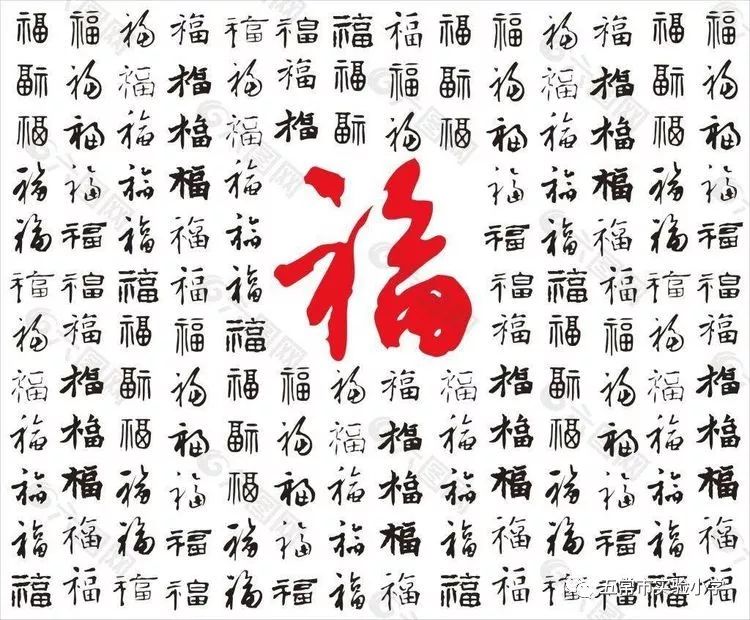 福福福福福福福福福福福福福福
福福福福福福福福福福福福福福
福福福福福福福福福福福福福福
福福福福福 福福福福福
福福福福福 福福福福福
福
福福福福福 福福福福福
福福福福福 福福福福福
福福福福福福福福福福福福福福
福福福福福福福福福福福福福福
福福福福福福福福福福福福福福
福福福福福福福福福福福福福福
福福福福福福福福福福福福福福
五常市实验小学